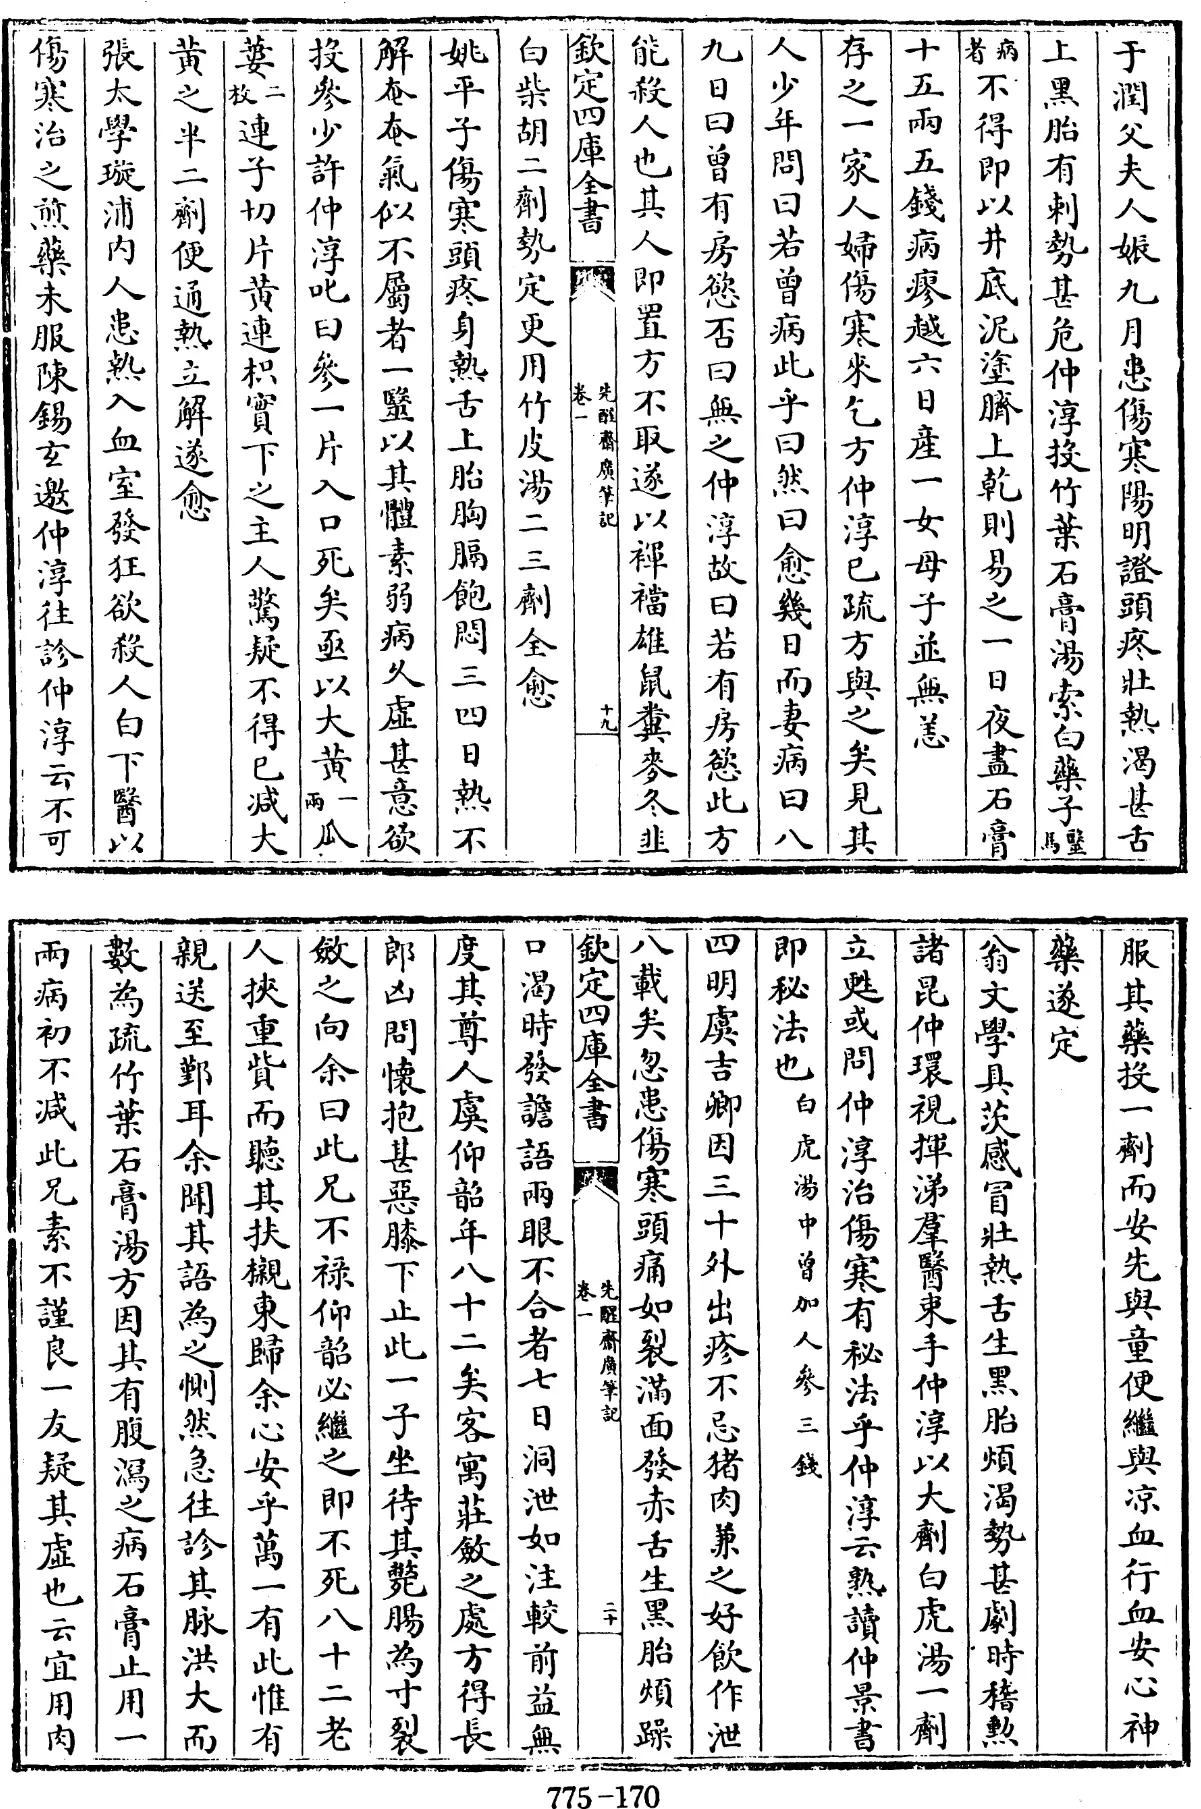 于潤父夫人娠九月患傷寒陽明證頭疼壯熱渴甚舌
上黑胎有刺勢甚危仲淳投竹葉石膏湯索白藥子醫馬
病者不得即以井底泥塗臍上乾則易之一日夜盡石膏
十五兩五錢病瘳越六日產一女母子並無恙
存之一家人婦傷寒來乞方仲淳已疏方與之矣見其
人少年問曰若曾病此乎曰然曰愈幾日而妻病曰八
九日曰曾有房慾否曰無之仲淳故曰若有房慾此方
能殺人也其人即置方不取遂以褌襠雄鼠糞麥冬韭
欽定四庫全書
先醒齋廣筆記
卷一
十九
白柴胡二劑勢定更用竹皮湯二三劑全愈
姚平子傷寒頭疼身熱舌上胎胸膈飽悶三四日熱不
解奄奄氣似不屬者一醫以其體素弱病久虛甚意欲
投參少許仲淳叱曰參一片入口死矣亟以大黃一兩瓜
蔞二枚連子切片黃連枳實下之主人驚疑不得已減大
黃之半二劑便通熱立解遂愈
張太學璇浦內人患熱入血室發狂欲殺人白下醫以
傷寒治之煎藥未服陳錫玄邀仲淳往診仲淳云不可
服其藥投一劑而安先與童便繼與凉血行血安心神
藥遂定
翁文學具茨感冒壯熱舌生黑胎煩渴勢甚劇時稽勲
諸昆仲環視揮涕羣醫束手仲淳以大劑白虎湯一劑
立甦或問仲淳治傷寒有秘法乎仲淳云熟讀仲景書
即秘法也白虎湯中曾加人參三錢
四明虞吉卿因三十外出疹不忌猪肉兼之好飲作泄
八載矣忽患傷寒頭痛如裂滿面發赤舌生黑胎煩躁
欽定四庫全書
先醒齋廣筆記
卷一
二十
口渴時發譫語兩眼不合者七日洞泄如注較前益無
度其尊人虞仰韶年八十二矣客寓莊斂之處方得長
郎凶問懷抱甚惡膝下止此一子坐待其斃腸為寸裂
斂之向余曰此兄不祿仰韶必繼之即不死八十二老
人挾重貲而聽其扶櫬東歸余心安乎萬一有此惟有
親送至鄞耳余聞其語為之惻然急往診其脉洪大而
數為疏竹葉石膏湯方因其有腹瀉之病石膏止用一
兩病初不減此兄素不謹良一友疑其虛也云宜用肉
775-170